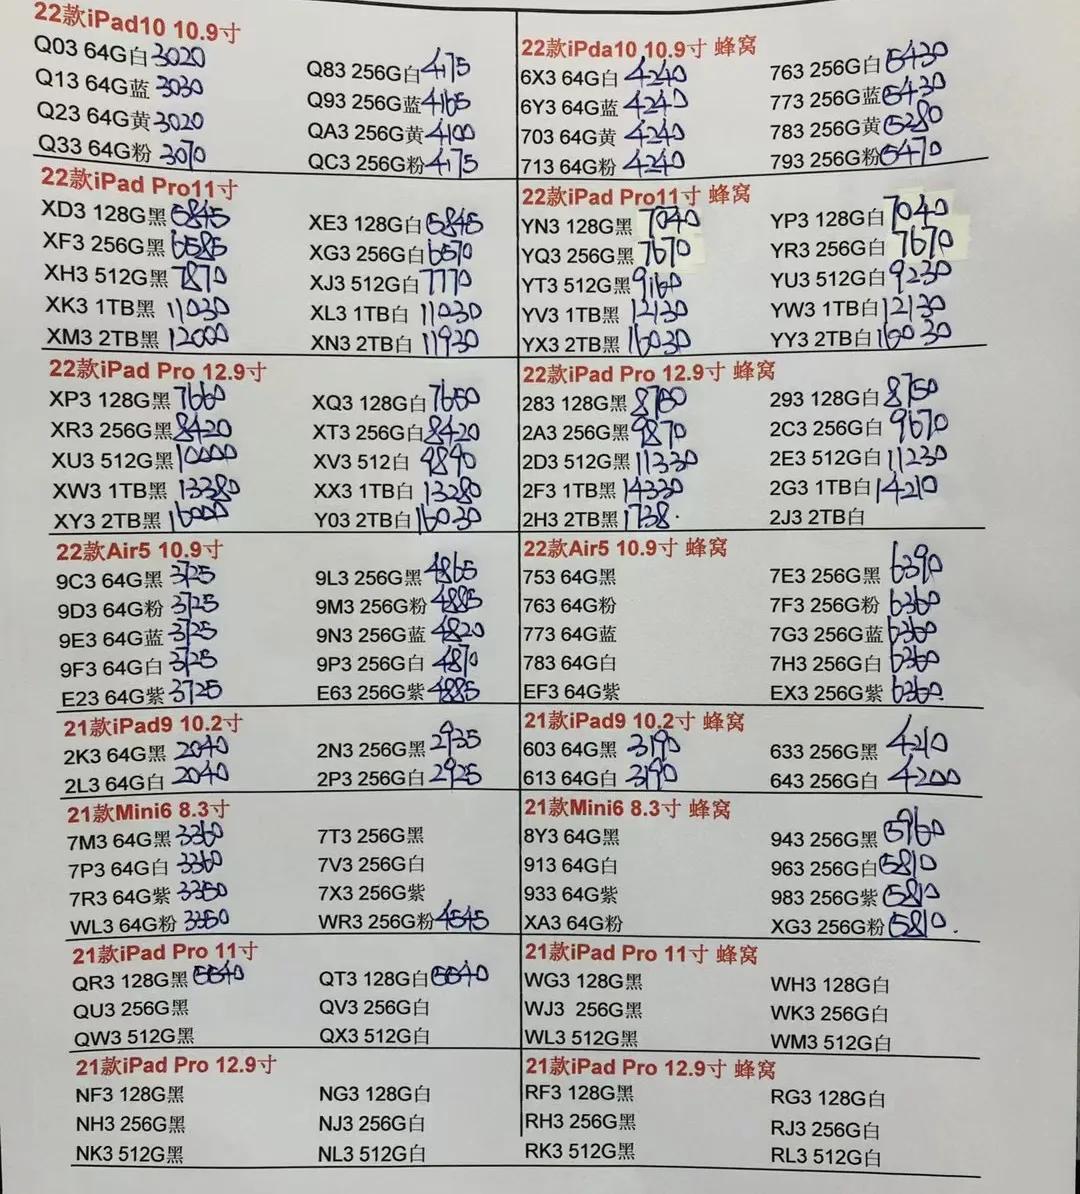 22款iPad10 10.9寸
Q03 64G白 3020
Q13 64G蓝 3030
Q23 64G黄 3020
Q33 64G粉 3070
Q83 256G白 4175
Q93 256G蓝 4165
QA3 256G黄 4100
QC3 256G粉 4175
22款iPda10 10.9寸 蜂窝
6X3 64G白 4240
6Y3 64G蓝 4240
703 64G黄 4240
713 64G粉 4240
763 256G白 5430
773 256G蓝 5430
783 256G黄 5280
793 256G粉 5470
22款iPad Pro11寸
XD3 128G黑 5845
XF3 256G黑 6585
XH3 512G黑 7870
XK3 1TB黑 11030
XM3 2TB黑 12000
XE3 128G白 5845
XG3 256G白 6570
XJ3 512G白 7770
XL3 1TB白 11030
XN3 2TB白 11930
22款iPad Pro11寸 蜂窝
YN3 128G黑 7040
YQ3 256G黑 7670
YT3 512G黑 9160
YV3 1TB黑 12130
YX3 2TB黑 16030
YP3 128G白 7040
YR3 256G白 7670
YU3 512G白 9230
YW3 1TB白 12130
YY3 2TB白 16030
22款iPad Pro 12.9寸
XP3 128G黑 7660
XR3 256G黑 8420
XU3 512G黑 10000
XW3 1TB黑 13380
XY3 2TB黑 16000
XQ3 128G白 7650
XT3 256G白 8420
XV3 512白 9890
XX3 1TB白 13280
Y03 2TB白 16030
22款iPad Pro 12.9寸 蜂窝
283 128G黑
2A3 256G黑 9870
2D3 512G黑 11330
2F3 1TB黑 14330
2H3 2TB黑 1738.
293 128G白 8750
2C3 256G白 9670
2E3 512G白 11230
2G3 1TB白 14210
2J3 2TB白
22款Air5 10.9寸
9C3 64G黑 3725
9D3 64G粉 3725
9E3 64G蓝 3725
9F3 64G白 3725
E23 64G紫 3725
9L3 256G黑 4865
9M3 256G粉 4885
9N3 256G蓝 4820
9P3 256G白 4870
E63 256G紫 4885
22款Air5 10.9寸 蜂窝
753 64G黑
763 64G粉
773 64G蓝
783 64G白
EF3 64G紫
7E3 256G黑 6390
7F3 256G粉 6360
7G3 256G蓝 6360
7H3 256G白 6360
EX3 256G紫 6360
21款iPad9 10.2寸
2K3 64G黑 2040
2L3 64G白 2040
2N3 256G黑 2935
2P3 256G白 2925
21款iPad9 10.2寸 蜂窝
603 64G黑 3190
613 64G白 3190
633 256G黑 4210
643 256G白 4200
21款Mini6 8.3寸
7M3 64G黑 3360
7P3 64G白 3360
7R3 64G紫 3350
WL3 64G粉 3350
7T3 256G黑
7V3 256G白
7X3 256G紫
WR3 256G粉 4545
21款Mini6 8.3寸 蜂窝
8Y3 64G黑
913 64G白
933 64G紫
XA3 64G粉
943 256G黑 5960
963 256G白 5810
983 256G紫 5810
XG3 256G粉 5810.
21款iPad Pro 11寸
QR3 128G黑 5540
QU3 256G黑
QW3 512G黑
QT3 128G白 5540
QV3 256G白
QX3 512G白
21款iPad Pro 11寸 蜂窝
WG3 128G黑
WJ3 256G黑
WL3 512G黑
WH3 128G白
WK3 256G白
WM3 512G白
21款iPad Pro 12.9寸
NF3 128G黑
NH3 256G黑
NK3 512G黑
NG3 128G白
NJ3 256G白
NL3 512G白
21款iPad Pro 12.9寸 蜂窝
RF3 128G黑
RH3 256G黑
RK3 512G黑
RG3 128G白
RJ3 256G白
RL3 512G白